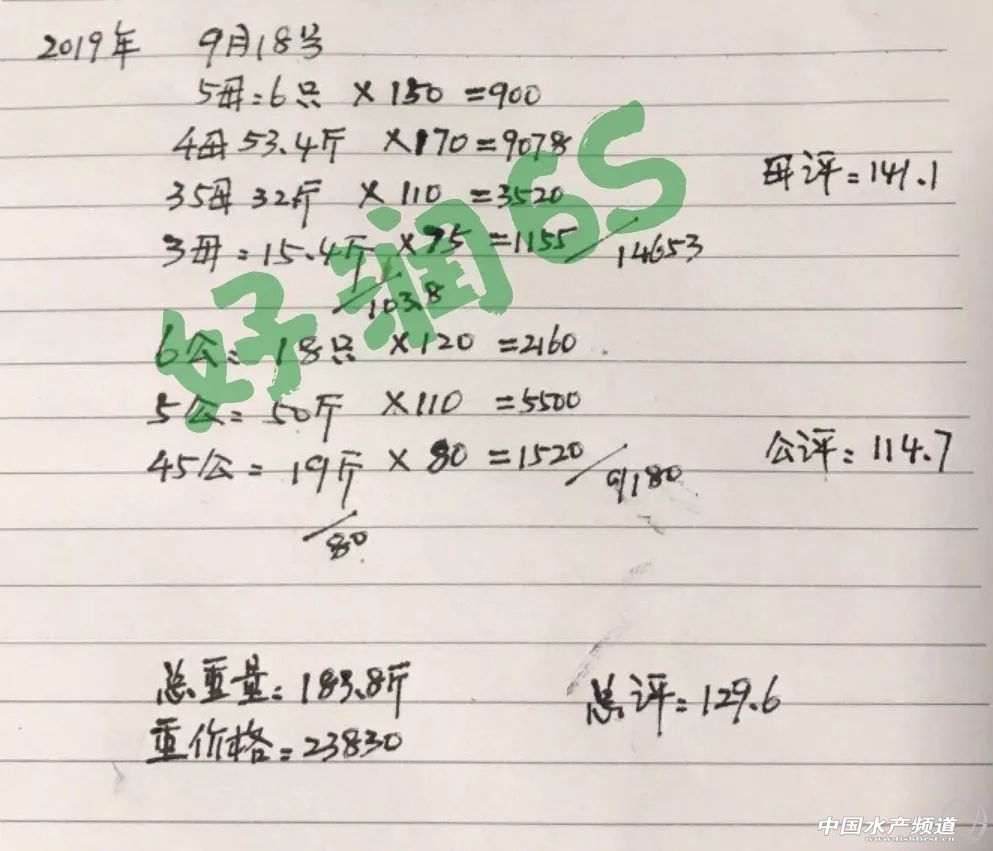 2019年 9月18号
5母:6只 ×150 =900
4母 53.4斤 ×170=9078
母评=141.1
35母 32斤 ×110 =3520
3母=15.4斤 ×75=1155 14653
103.8
6公= 18只 ×120 =2160
5公= 50斤 ×110 =5500
45公= 19斤 × 80 =1520 9180
公评=114.7
80
总重量=183.8斤
总评=129.6
重价格=23830
好润6S
中国水产频道
www.fishfirst.cn